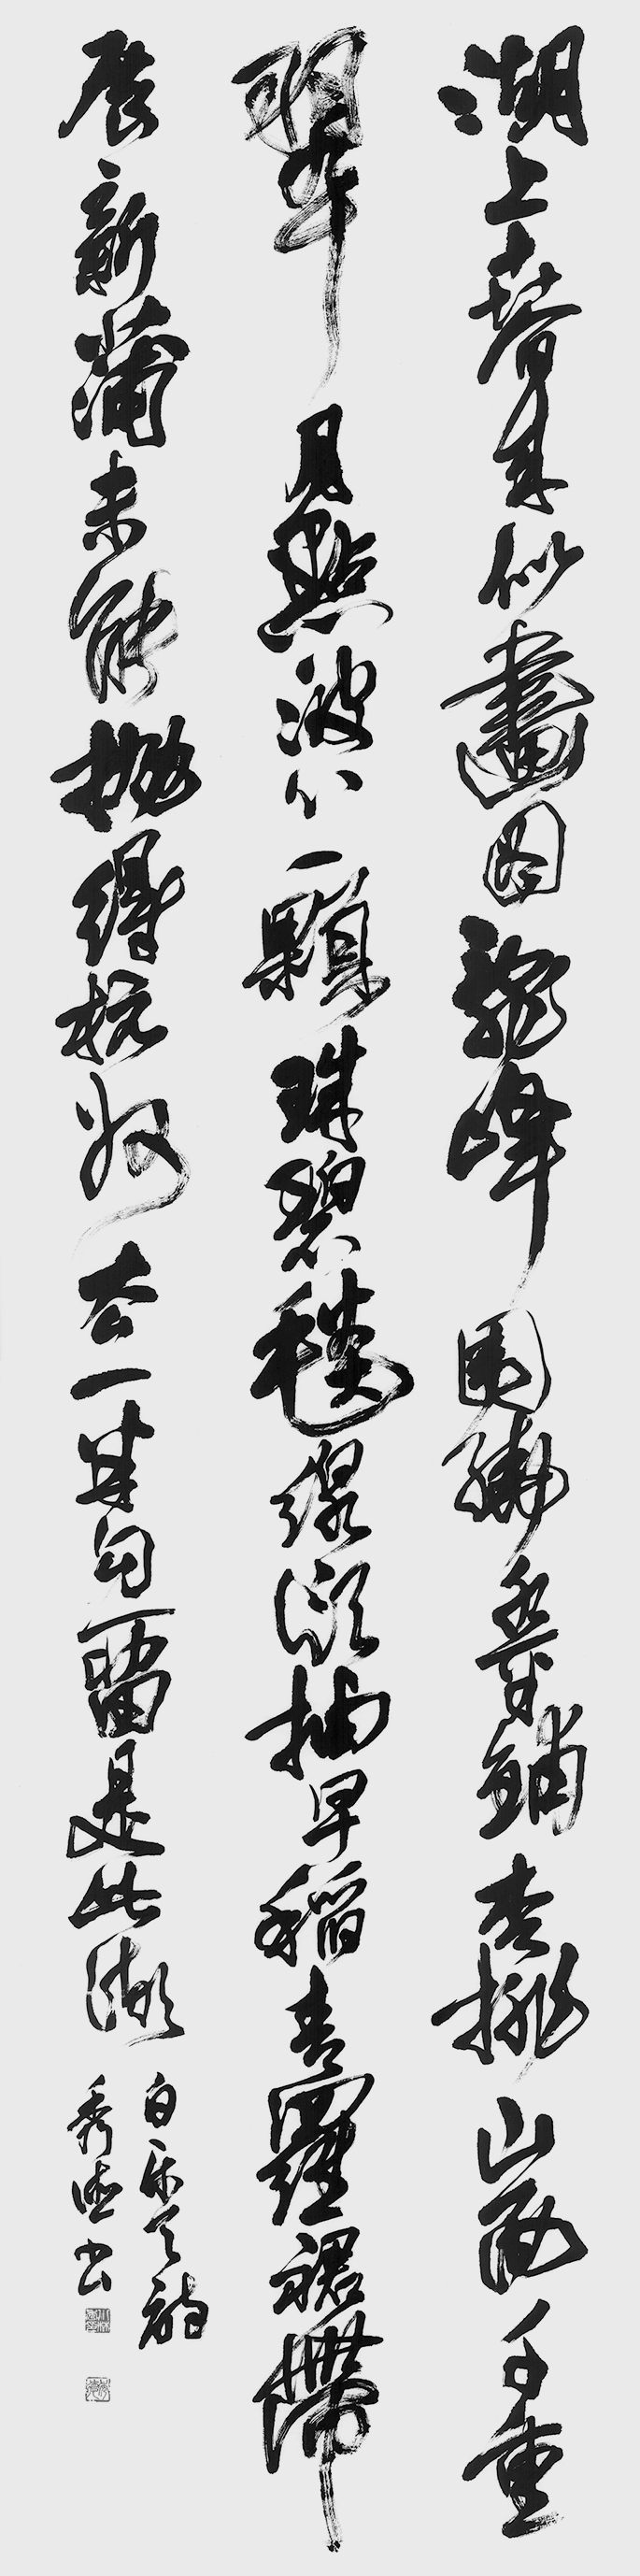 湖上春来似畫図亂峰囲繞水平鋪松排山面千重
翠月點波心一顆珠碧毯線頭抽早稲青羅裙帯
展新蒲未能抛得杭州去一半勾留是此湖
白楽天詩
秀書